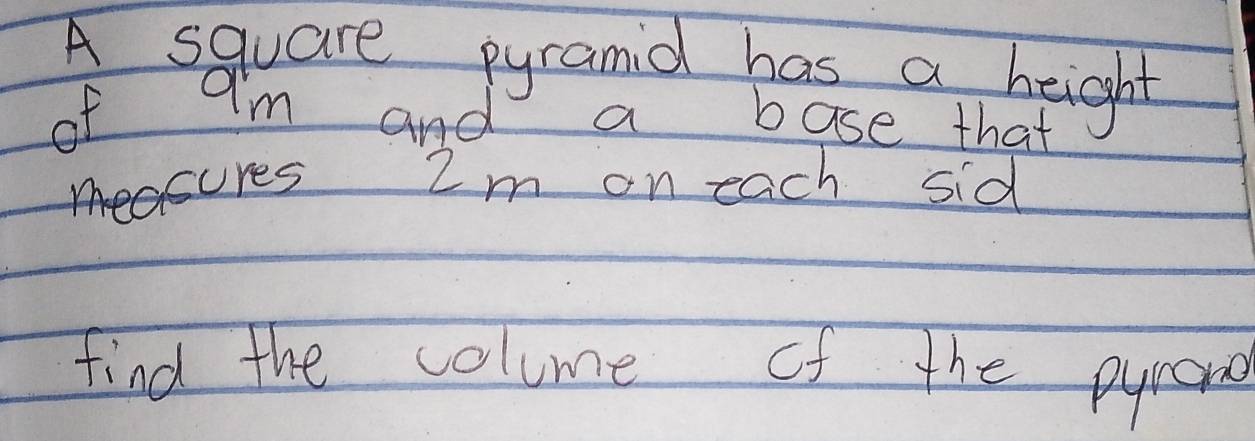 A square pyramid has a height
of 9m and a base that
measures 2m on each sid
find the volume of the pyramid